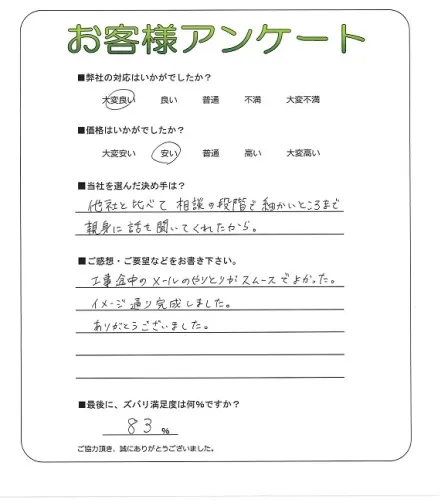 お客様アンケート
■弊社の対応はいかがでしたか？
大変良い 良い 普通 不満 大変不満
■価格はいかがでしたか？
大変安い 安い 普通 高い 大変高い
■当社を選んだ決め手は？
他社と比べて相談の段階で細かいところまで
親身に話を聞いてくれたから。
■ご感想・ご要望などをお書き下さい。
工事途中のメールのやりとりがスムースでよかった。
イメージ通り完成しました。
ありがとうございました。
■最後に、ズバリ満足度は何％ですか？
83％
ご協力頂き、誠にありがとうございました。